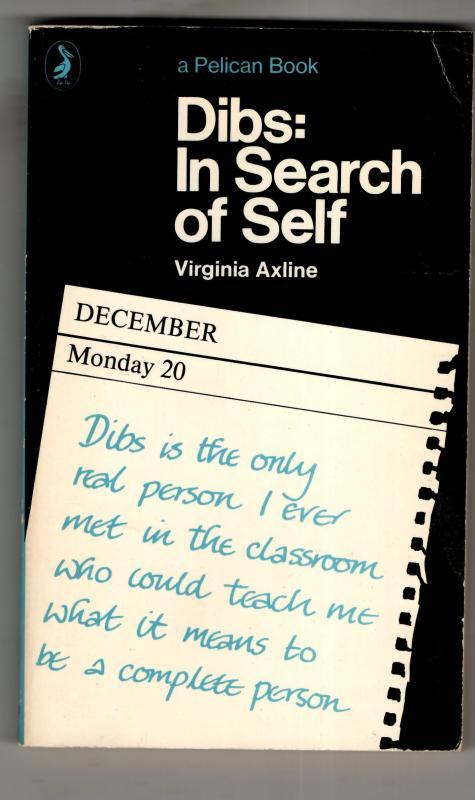 a Pelican Book
Dibs:
In Search
of Self
Virginia Axline
DECEMBER
Monday 20
Dibs is the only
real person I ever
met in the classroom
who could teach me
what it means to
be a complete person